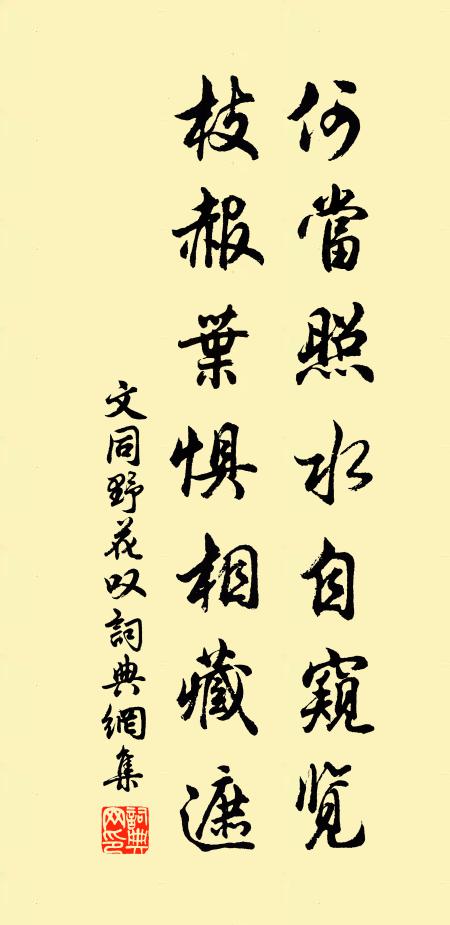 何當照水自窺览
枝赧葉惧相藏遮
文同野花叹詞典網集
詞典網印